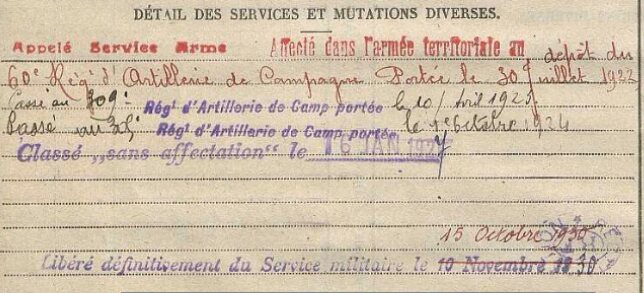 DÉTAIL DES SERVICES ET MUTATIONS DIVERSES.
Appelé Service Armé Affecté dans l'armée territoriale au dépôt du
60e Régt d'Artillerie de Campagne Portée le 30 juillet 1922
Passé au 309e Régt d'Artillerie de Camp portée le 10 Avril 1923
Passé au Régt d'Artillerie de Camp portée le 1e Octobre 1924
Classé „sans affectation" le 16 JAN 1927
15 Octobre 1930
Libéré définitivement du Service militaire le 10 Novembre 1930